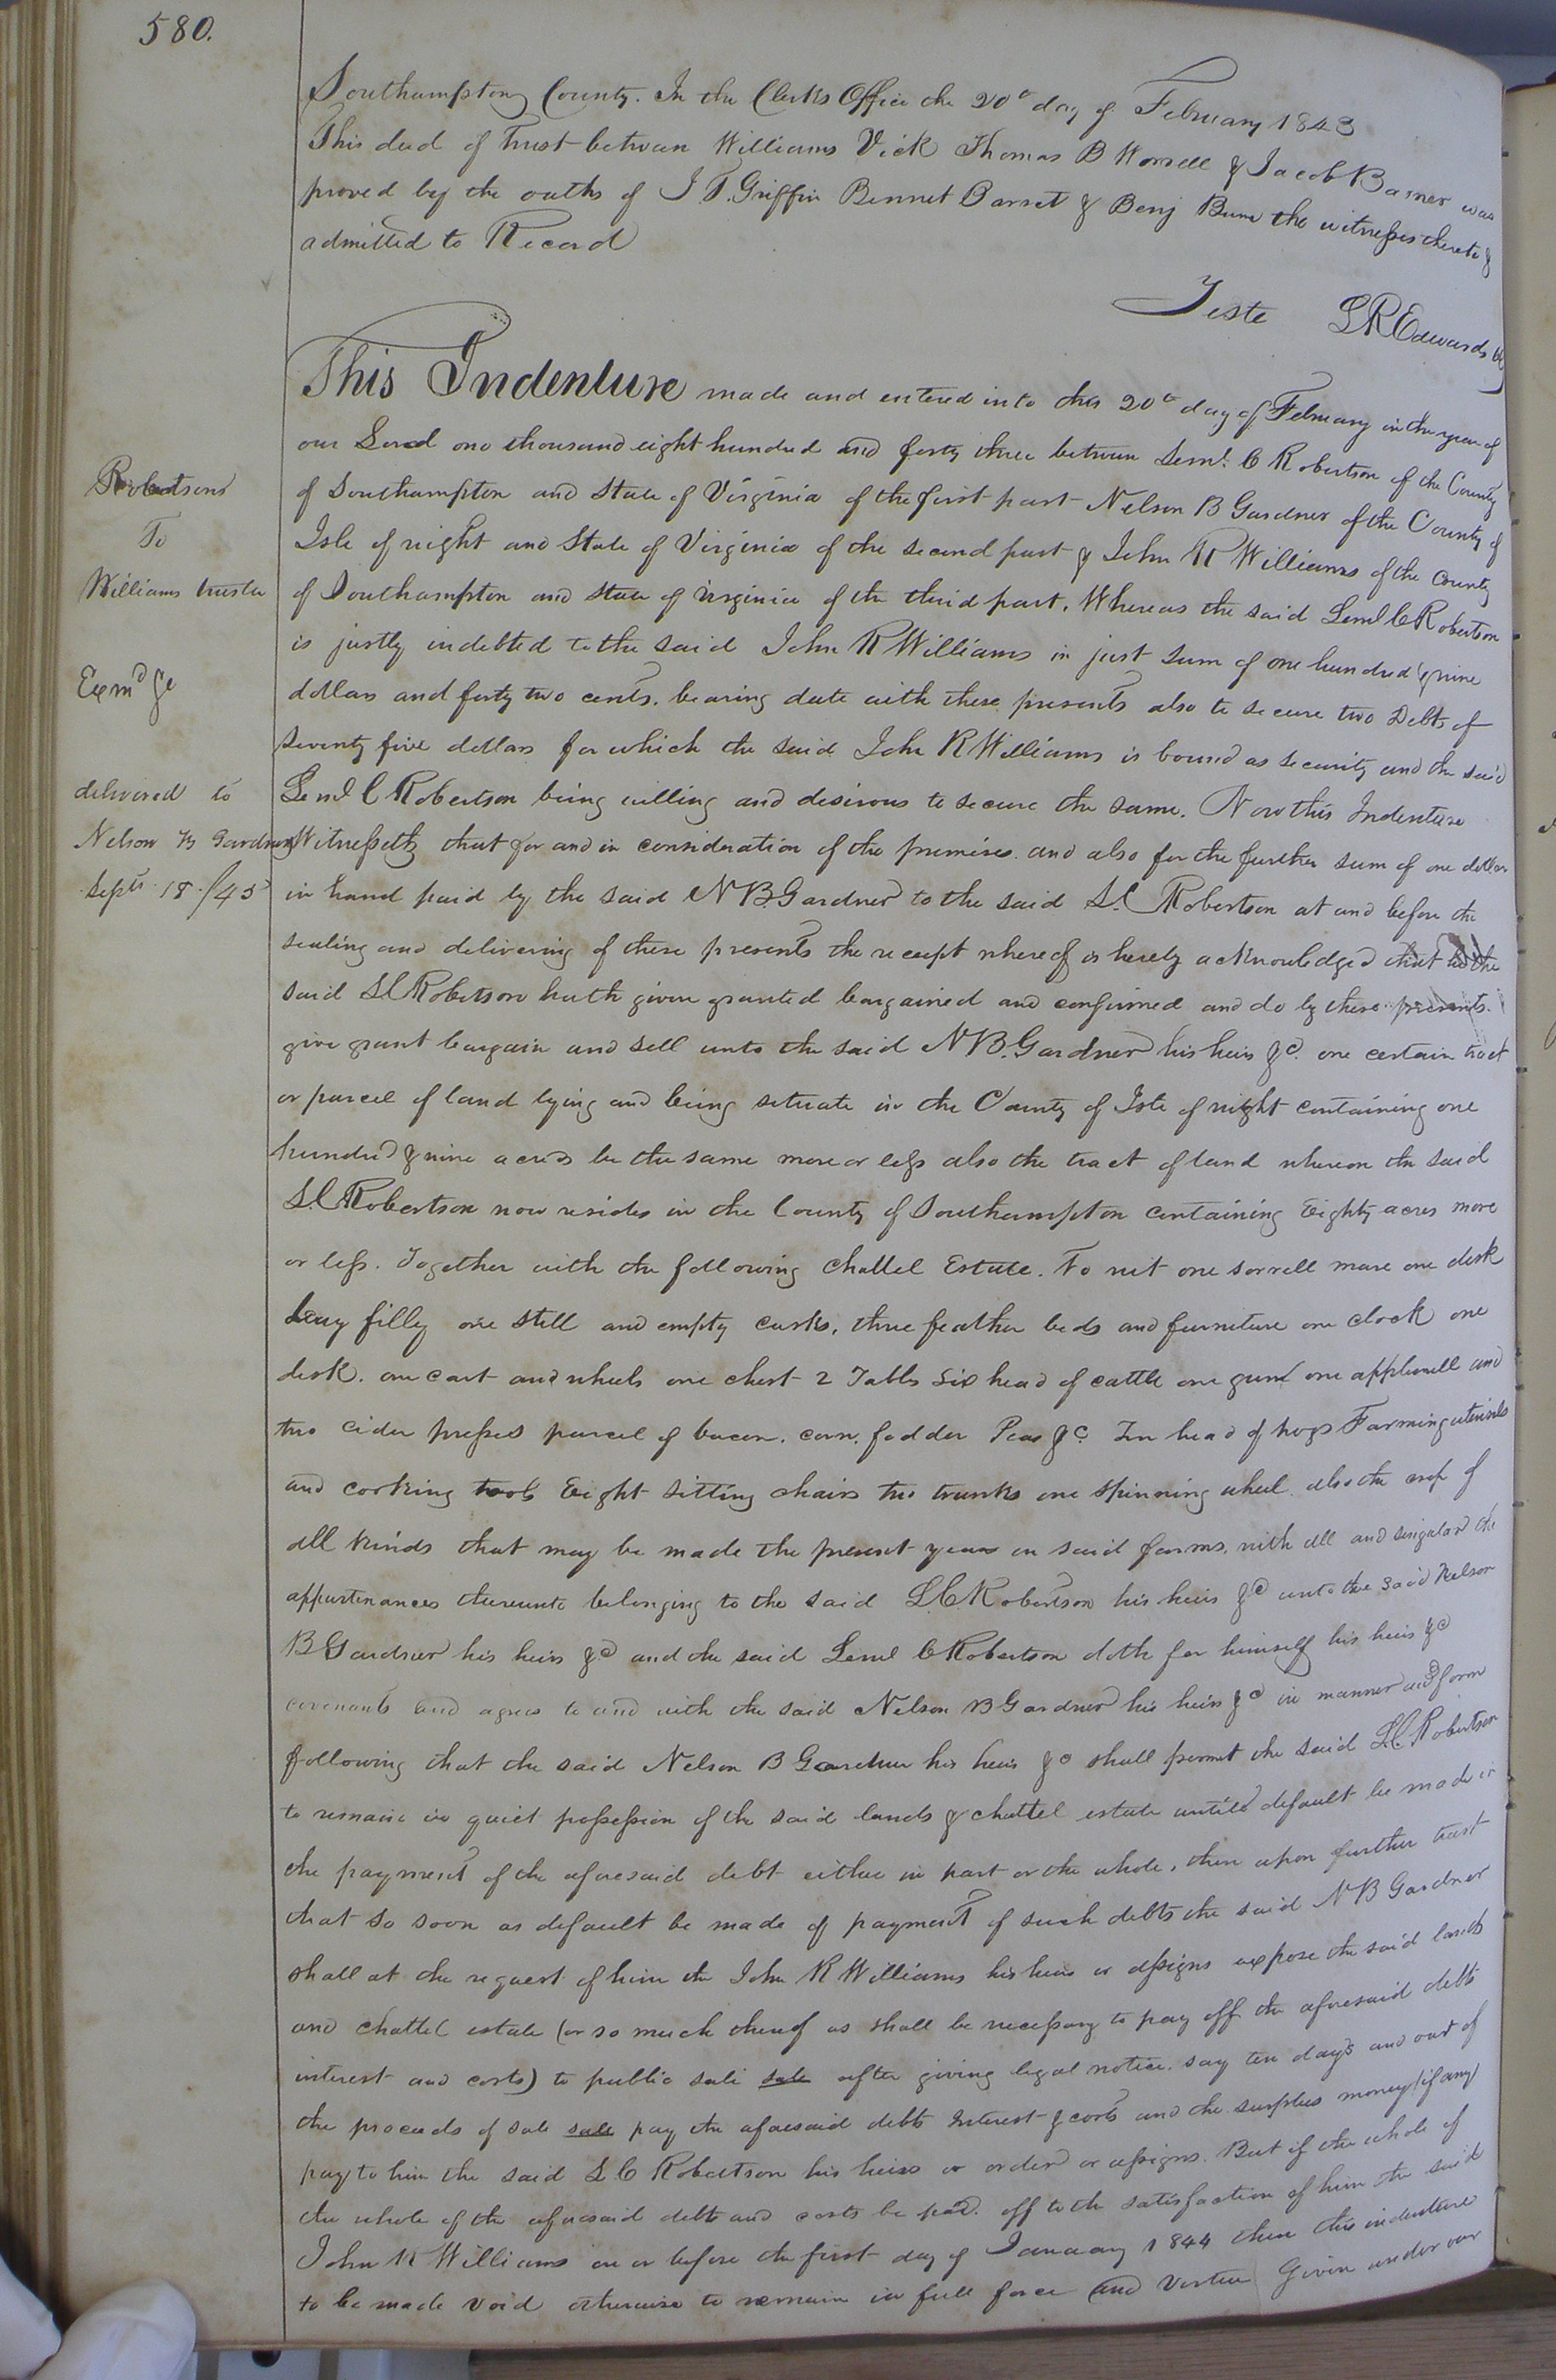 580.
Southampton County. In the Clerks Office the 20th day of February 1843
This deed of Trust between Williams Vick Thomas B Worrell & Jacob Barnes was
proved by the oaths of J T. Griffin Bennet Barret & Benj the witnesses thereto &
admitted to Record
Teste L R Edwards
This Indenture made and entered into this 20th day of February in the year of
our Lord one thousand eight hundred and forty three between Leml. C Robertson of the County
of Southampton and State of Virginia of the first part Nelson B Gardner of the County of
Isle of wight and State of Virginia of the second part & John R Williams of the County
of Southampton and State of Virginia of the third part. Whereas the said Leml C Robertson
is justly indebted to the said John R Williams in just sum of one hundred & nine
dollars and forty two cents. bearing date with these presents also to secure two Debts of
seventy five dollars for which the said John R Williams is bound as security and the said
Leml C Robertson being willing and desirous to secure the same. Now this Indenture
Witnesseth that for and in consideration of the premises and also for the further sum of one dollar
in hand paid by the said N B. Gardner to the said L.C Robertson at and before the
sealing and delivering of these presents the receipt whereof is hereby acknowledged that he the
said L C Robertson hath given granted bargained and confirmed and do by these presents.
give grant bargain and sell unto the said N B. Gardner his heirs &c. one certain tract
or parcel of land lying and being situate in the County of Isle of wight containing one
hundred & nine acres be the same more or less also the tract of land whereon the said
L.C Robertson now resides in the County of Southampton containing Eighty acres more
or less. Together with the following chattel Estate. To wit one sorrell mare one desk
bay filly one still and empty casks, three feather beds and furniture one clock one
desk. one cart and wheels one chest 2 Tables six head of cattle one gun one applemill and
two cider presses parcel of bacon. corn. fodder Peas &c. Ten head of hogs Farming utensils
and cooking tools Eight sitting chairs two trunks one spinning wheel also the crop of
all kinds that may be made the present year on said farms. with all and singular the
appurtinances thereunto belonging to the said L.C. Robertson his heirs &c unto the said Nelson
B Gardner his heirs &c and the said Leml C Robertson doth for himself his heirs &c
covenants and agrees to and with the said Nelson B Gardner his heirs &c in manner and form
following that the said Nelson B Gardner his heirs &c shall permit the said L.C Robertson
to remain in quiet possession of the said lands & chattel estate untill default be made in
the payment of the aforesaid debt either in part or the whole, then upon further trust
that so soon as default be made of payment of such debts the said N B Gardner
shall at the request of him the John R Williams his heirs or assigns expose the said lands
and chattel estate (or so much thereof as shall be necessary to pay off the aforesaid debts
interest and costs) to public sale sale after giving legal notice. say ten days and out of
the proceeds of sale sale pay the aforesaid debts Interest & costs and the surplus money (if any)
pay to him the said L C Robertson his heirs or order or assigns. But if the whole of
the whole of the aforesaid debts and costs be paid. off to the satisfaction of him the said
John R Williams on or before the first day of January 1844 then this indenture
to be made void otherwise to remain in full force and Vertue Given under our
Robertsons
To
Williams trustee
Exmd &c
delivered to
Nelson B Gardner
Septr 18./43